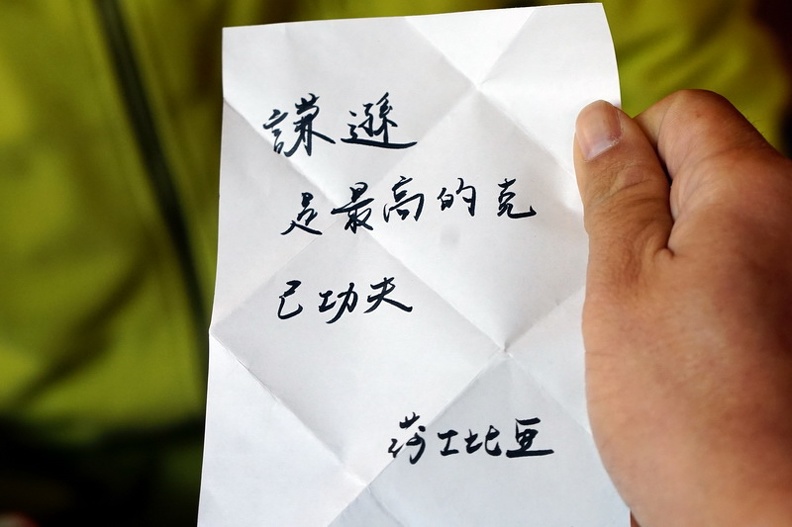 謙遜
是最高的克
己功夫
莎士比亞